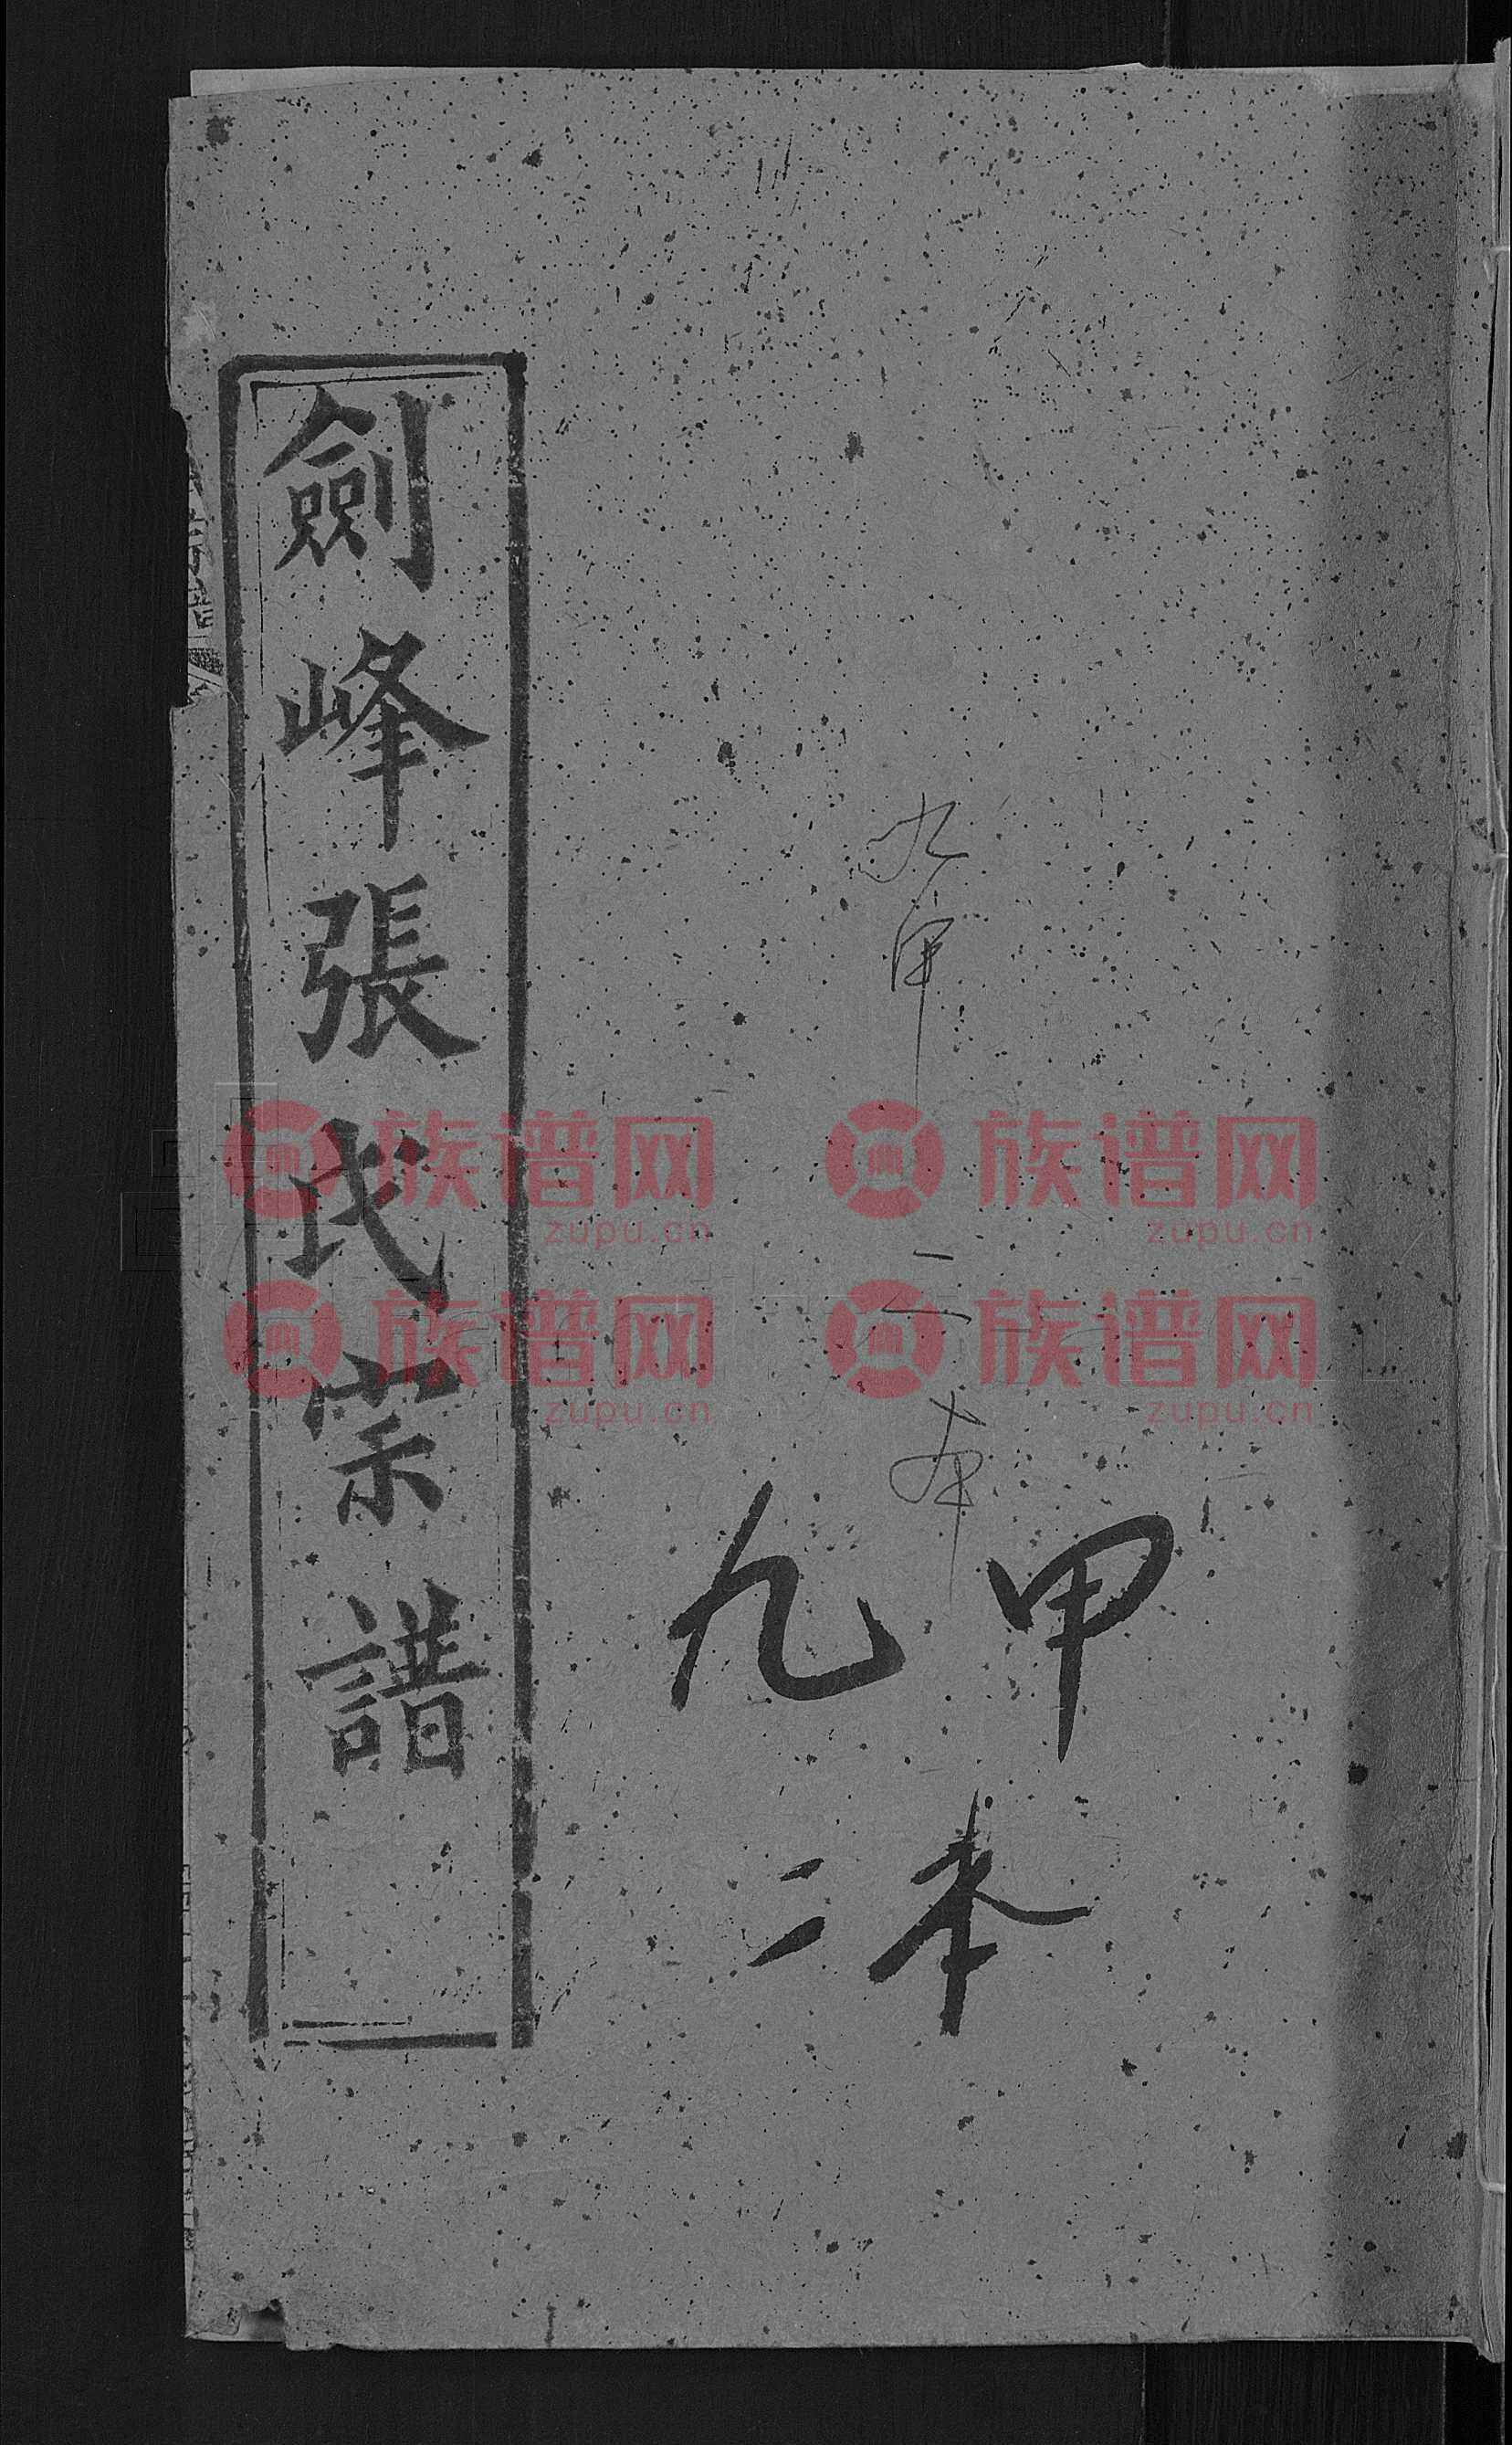 劍峰張氏宗譜
九甲
二本
九甲
二本
族谱网
zupu.cn
族谱网
zupu.cn
族谱网
zupu.cn
族谱网
zupu.cn